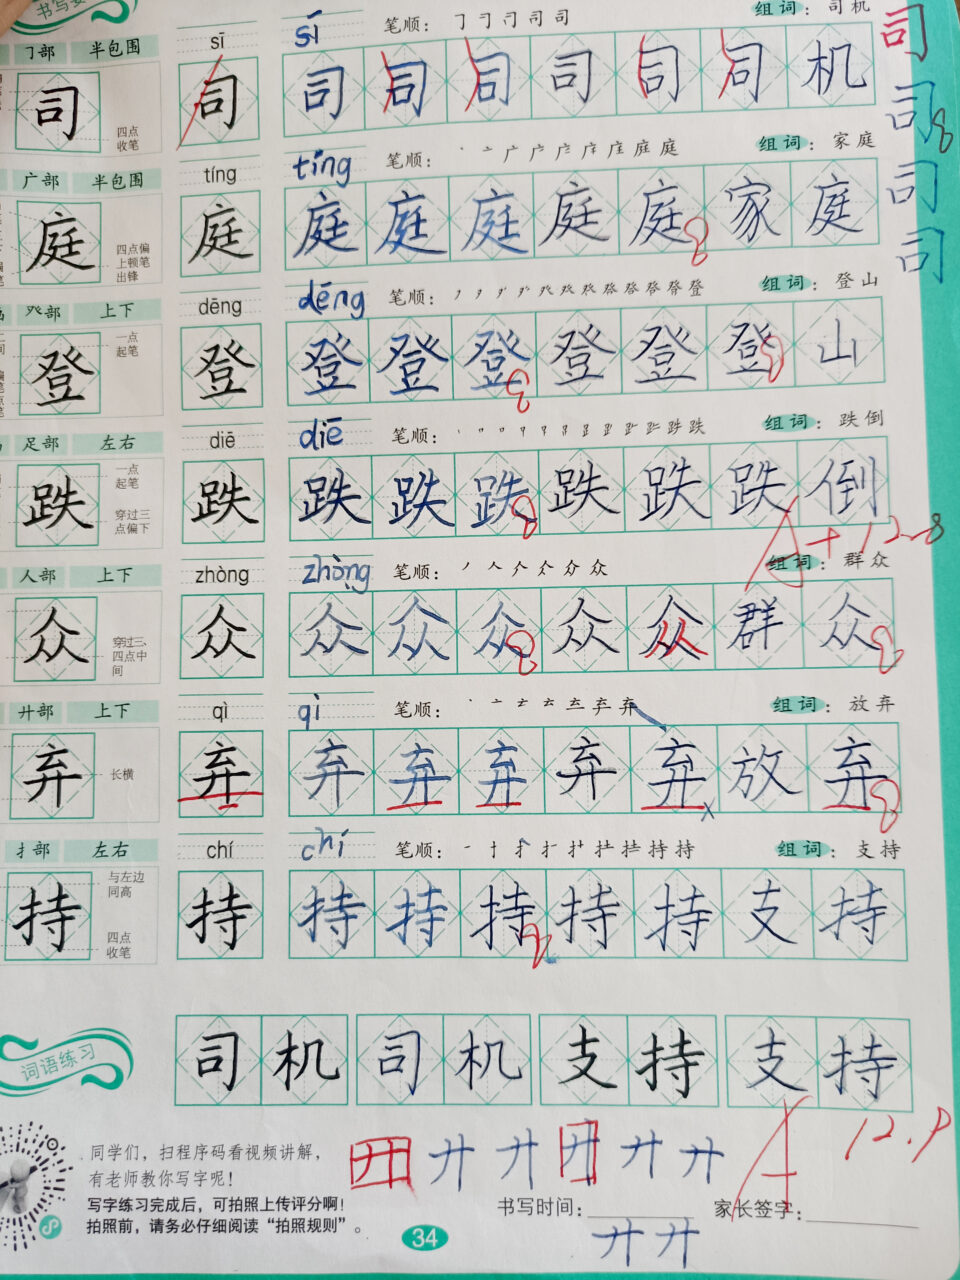 书写
㇆部 半包围 sī sī 笔顺： 组词：司机
司 四点收笔 司 司 司 司 司 司 司 机 司
司 8
广部 半包围 tíng tíng 笔顺： 组词：家庭
庭 四点偏上顿笔出锋 庭 庭 庭 庭 庭 庭 8 家 庭 司
司
癶部 上下 dēng dēng 笔顺： 组词：登山
登 一点起笔 登 登 登 登 8 登 登 登 8 山
足部 左右 diē diē 笔顺： 组词：跌倒
跌 一点起笔 穿过三点偏下 跌 跌 跌 跌 8 跌 跌 跌 倒
A+ 12.8
人部 上下 zhòng zhòng 笔顺： 组词：群众
众 穿过三、四点中间 众 众 众 众 8 众 众 群 众 8
廾部 上下 qì qì 笔顺： 组词：放弃
弃 长横 弃 弃 弃 弃 弃 弃 放 弃 8
扌部 左右 chí chí 笔顺： 组词：支持
持 与左边同高 四点收笔 持 持 持 持 持 持 支 持
词语练习 司 机 司 机 支 持 支 持
A 12.9
同学们，扫程序码看视频讲解，
有老师教你写字呢！
廾 廾 廾 廾 廾 廾
写字练习完成后，可拍照上传评分啊！
拍照前，请务必仔细阅读“拍照规则”。
书写时间： 家长签字：
34
廾 廾